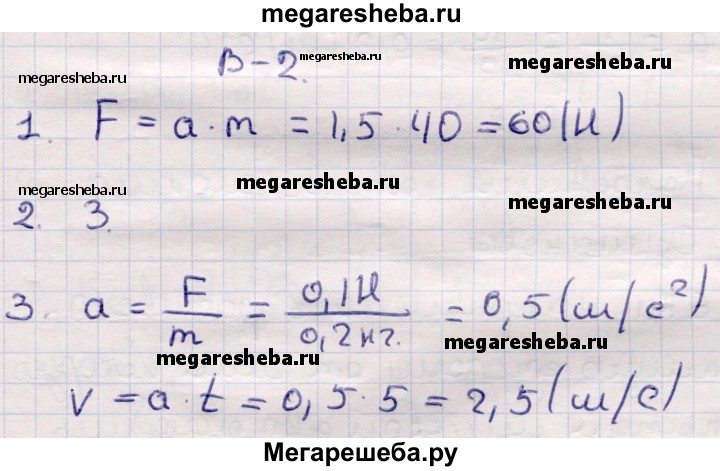 megaresheba.ru
В-2.
megaresheba.ru
megaresheba.ru
megaresheba.ru
1. F = a · m = 1,5 · 40 = 60 (Н)
megaresheba.ru
megaresheba.ru
megaresheba.ru
2. 3.
3. a = F/m = 0,1Н/0,2кг. = 0,5 (м/с²)
megaresheba.ru
megaresheba.ru
v = a · t = 0,5 · 5 = 2,5 (м/с)
Мегарешеба.ру